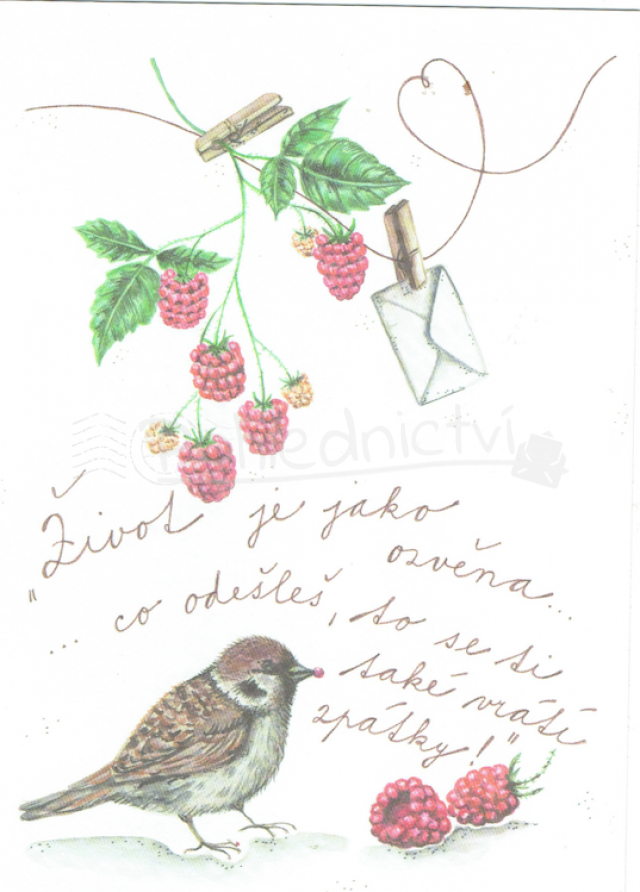 Pohlednictví
„Život je jako
ozvěna...
... co odešleš, to se ti
také vrátí
zpátky!"